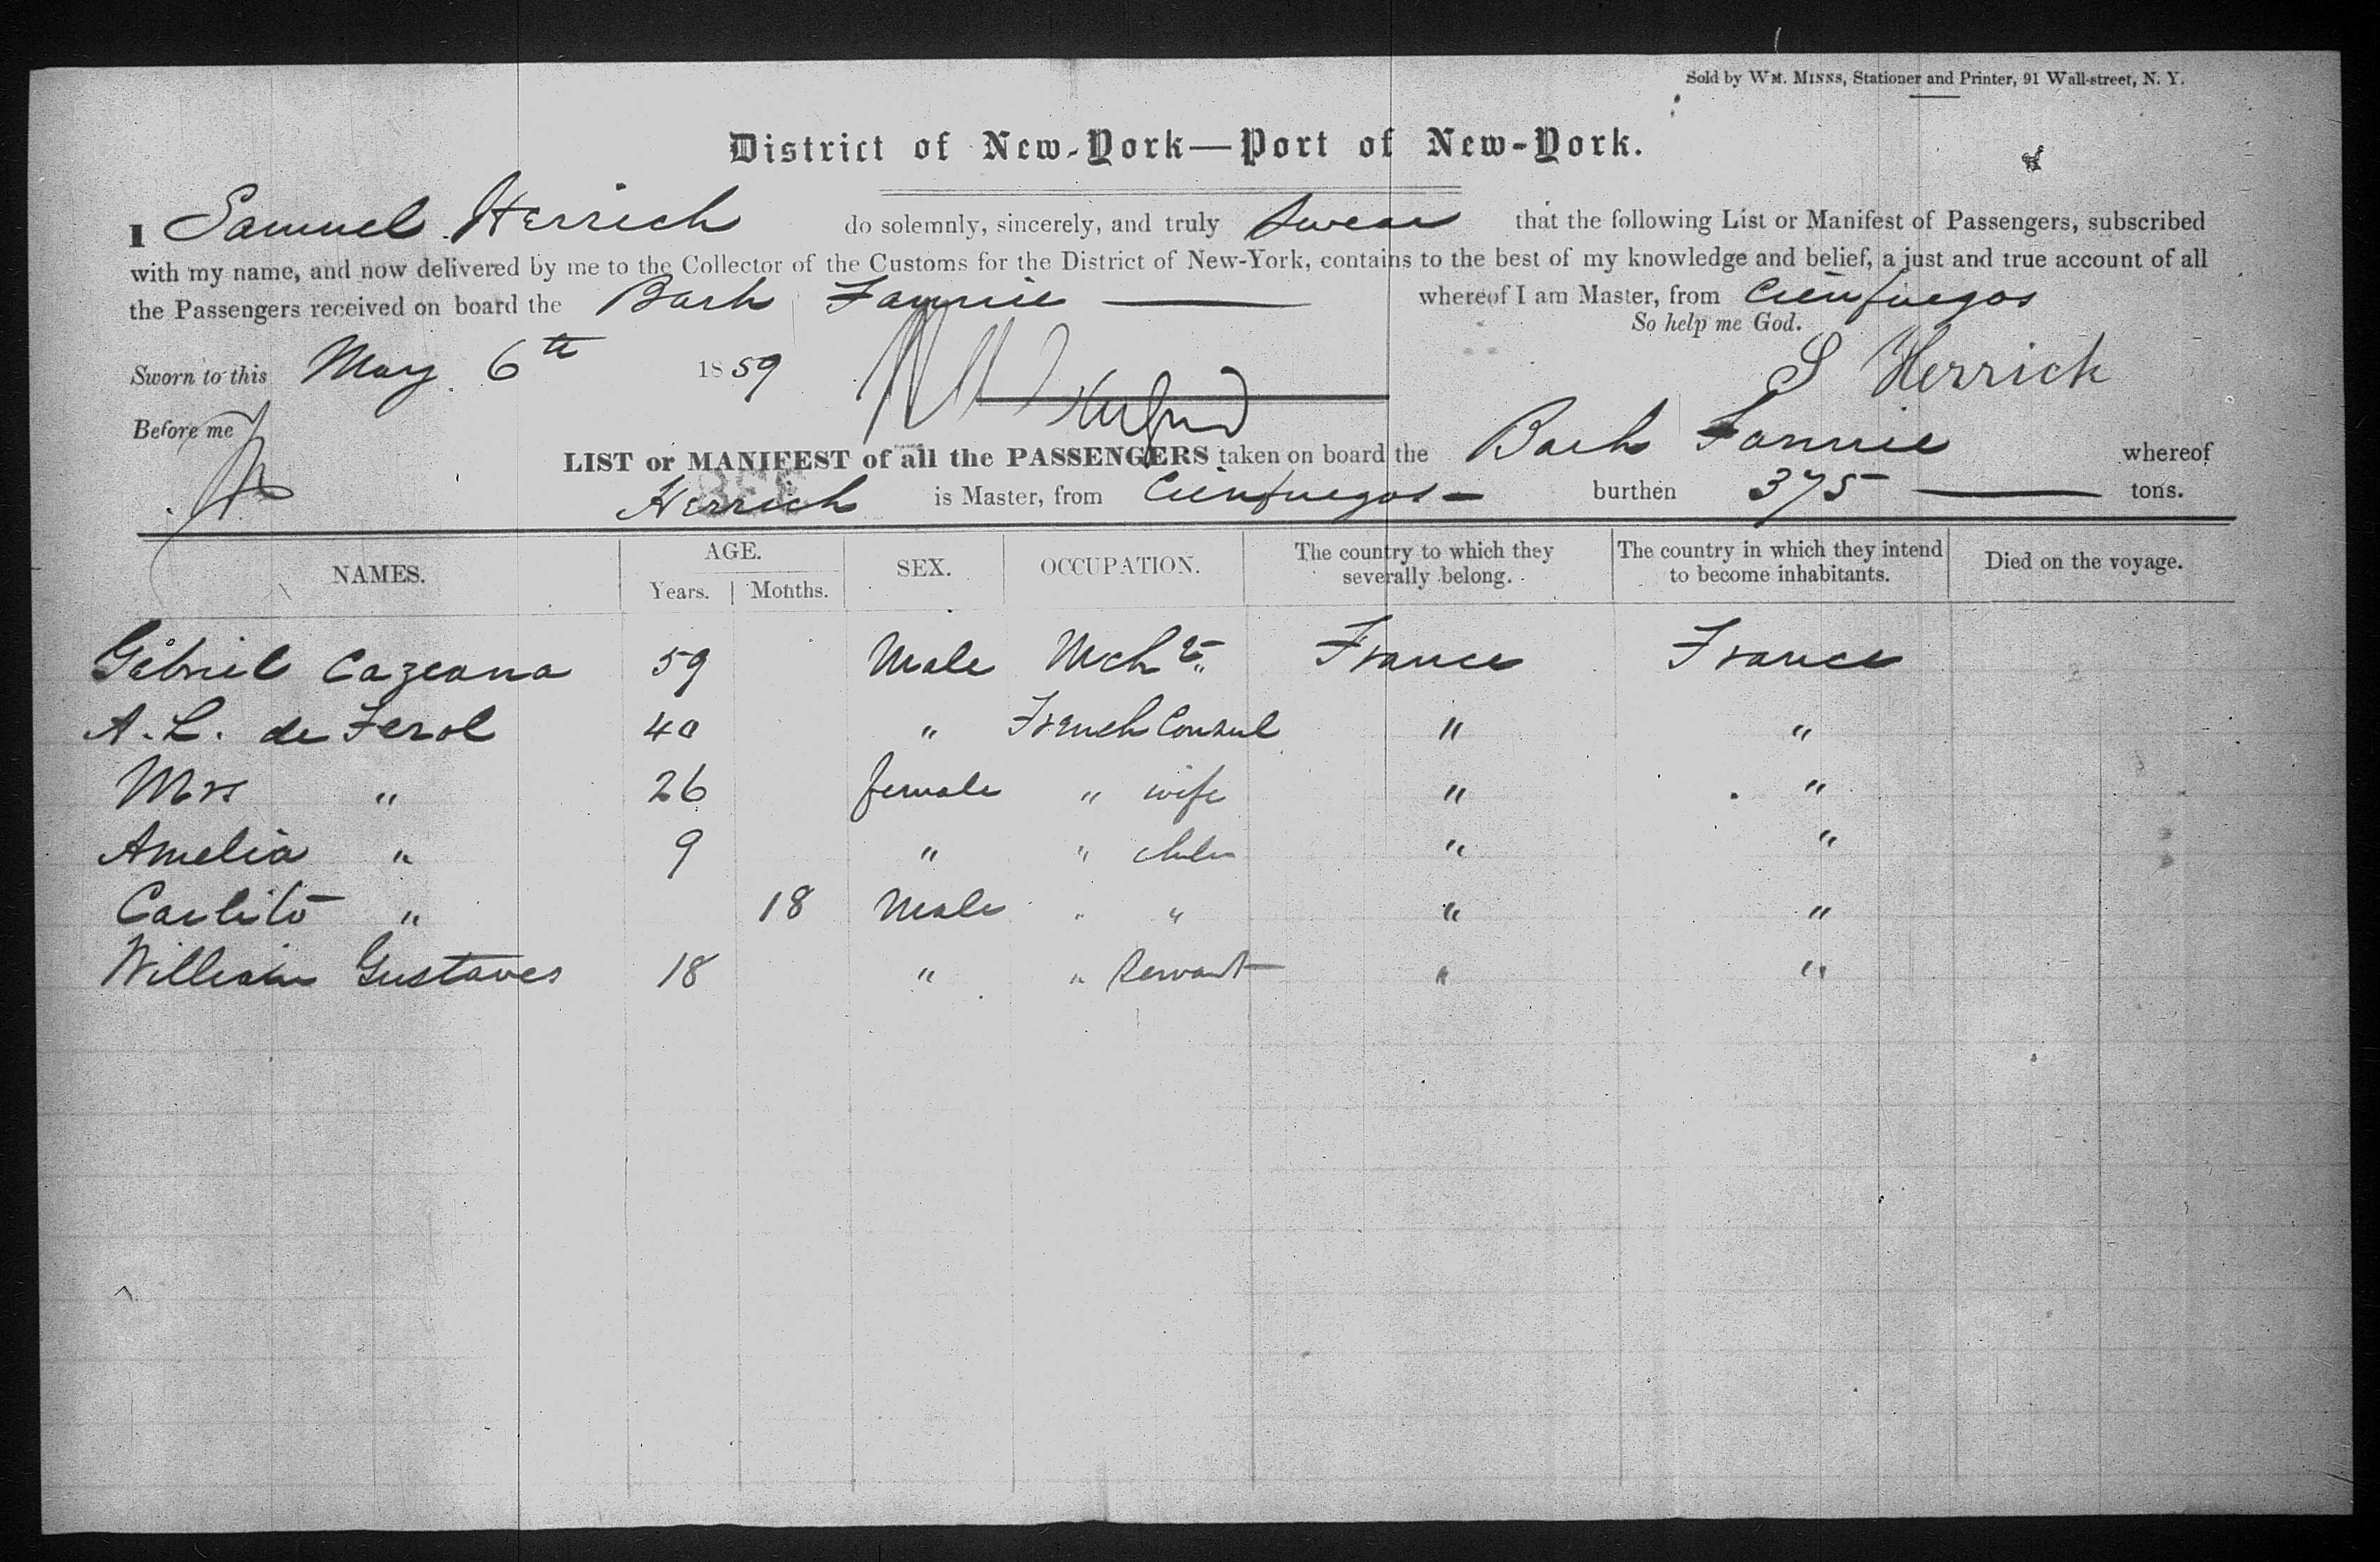 Sold by WM. MINNS, Stationer and Printer, 91 Wall-street, N. Y.
District of New-York—Port of New-York.
I Samuel Herrick do solemnly, sincerely, and truly swear that the following List or Manifest of Passengers, subscribed
with my name, and now delivered by me to the Collector of the Customs for the District of New-York, contains to the best of my knowledge and belief, a just and true account of all
the Passengers received on board the Bark Fannie whereof I am Master, from Cienfuegos
So help me God.
Sworn to this May 6th 1859 S Herrick
Before me
LIST or MANIFEST of all the PASSENGERS taken on board the Bark Fannie whereof
Herrick is Master, from Cienfuegos burthen 375 tons.
NAMES. AGE. Years. Months. SEX. OCCUPATION. The country to which they severally belong. The country in which they intend to become inhabitants. Died on the voyage.
Gabriel Cazeana 59 Male Mcht France France
A. L. de Ferol 40 " French Consul " "
Mrs " 26 female " wife " "
Amelia " 9 " " "  "
Carlito " 18 Male " " " "
William Gustaves 18 " " Servant " "